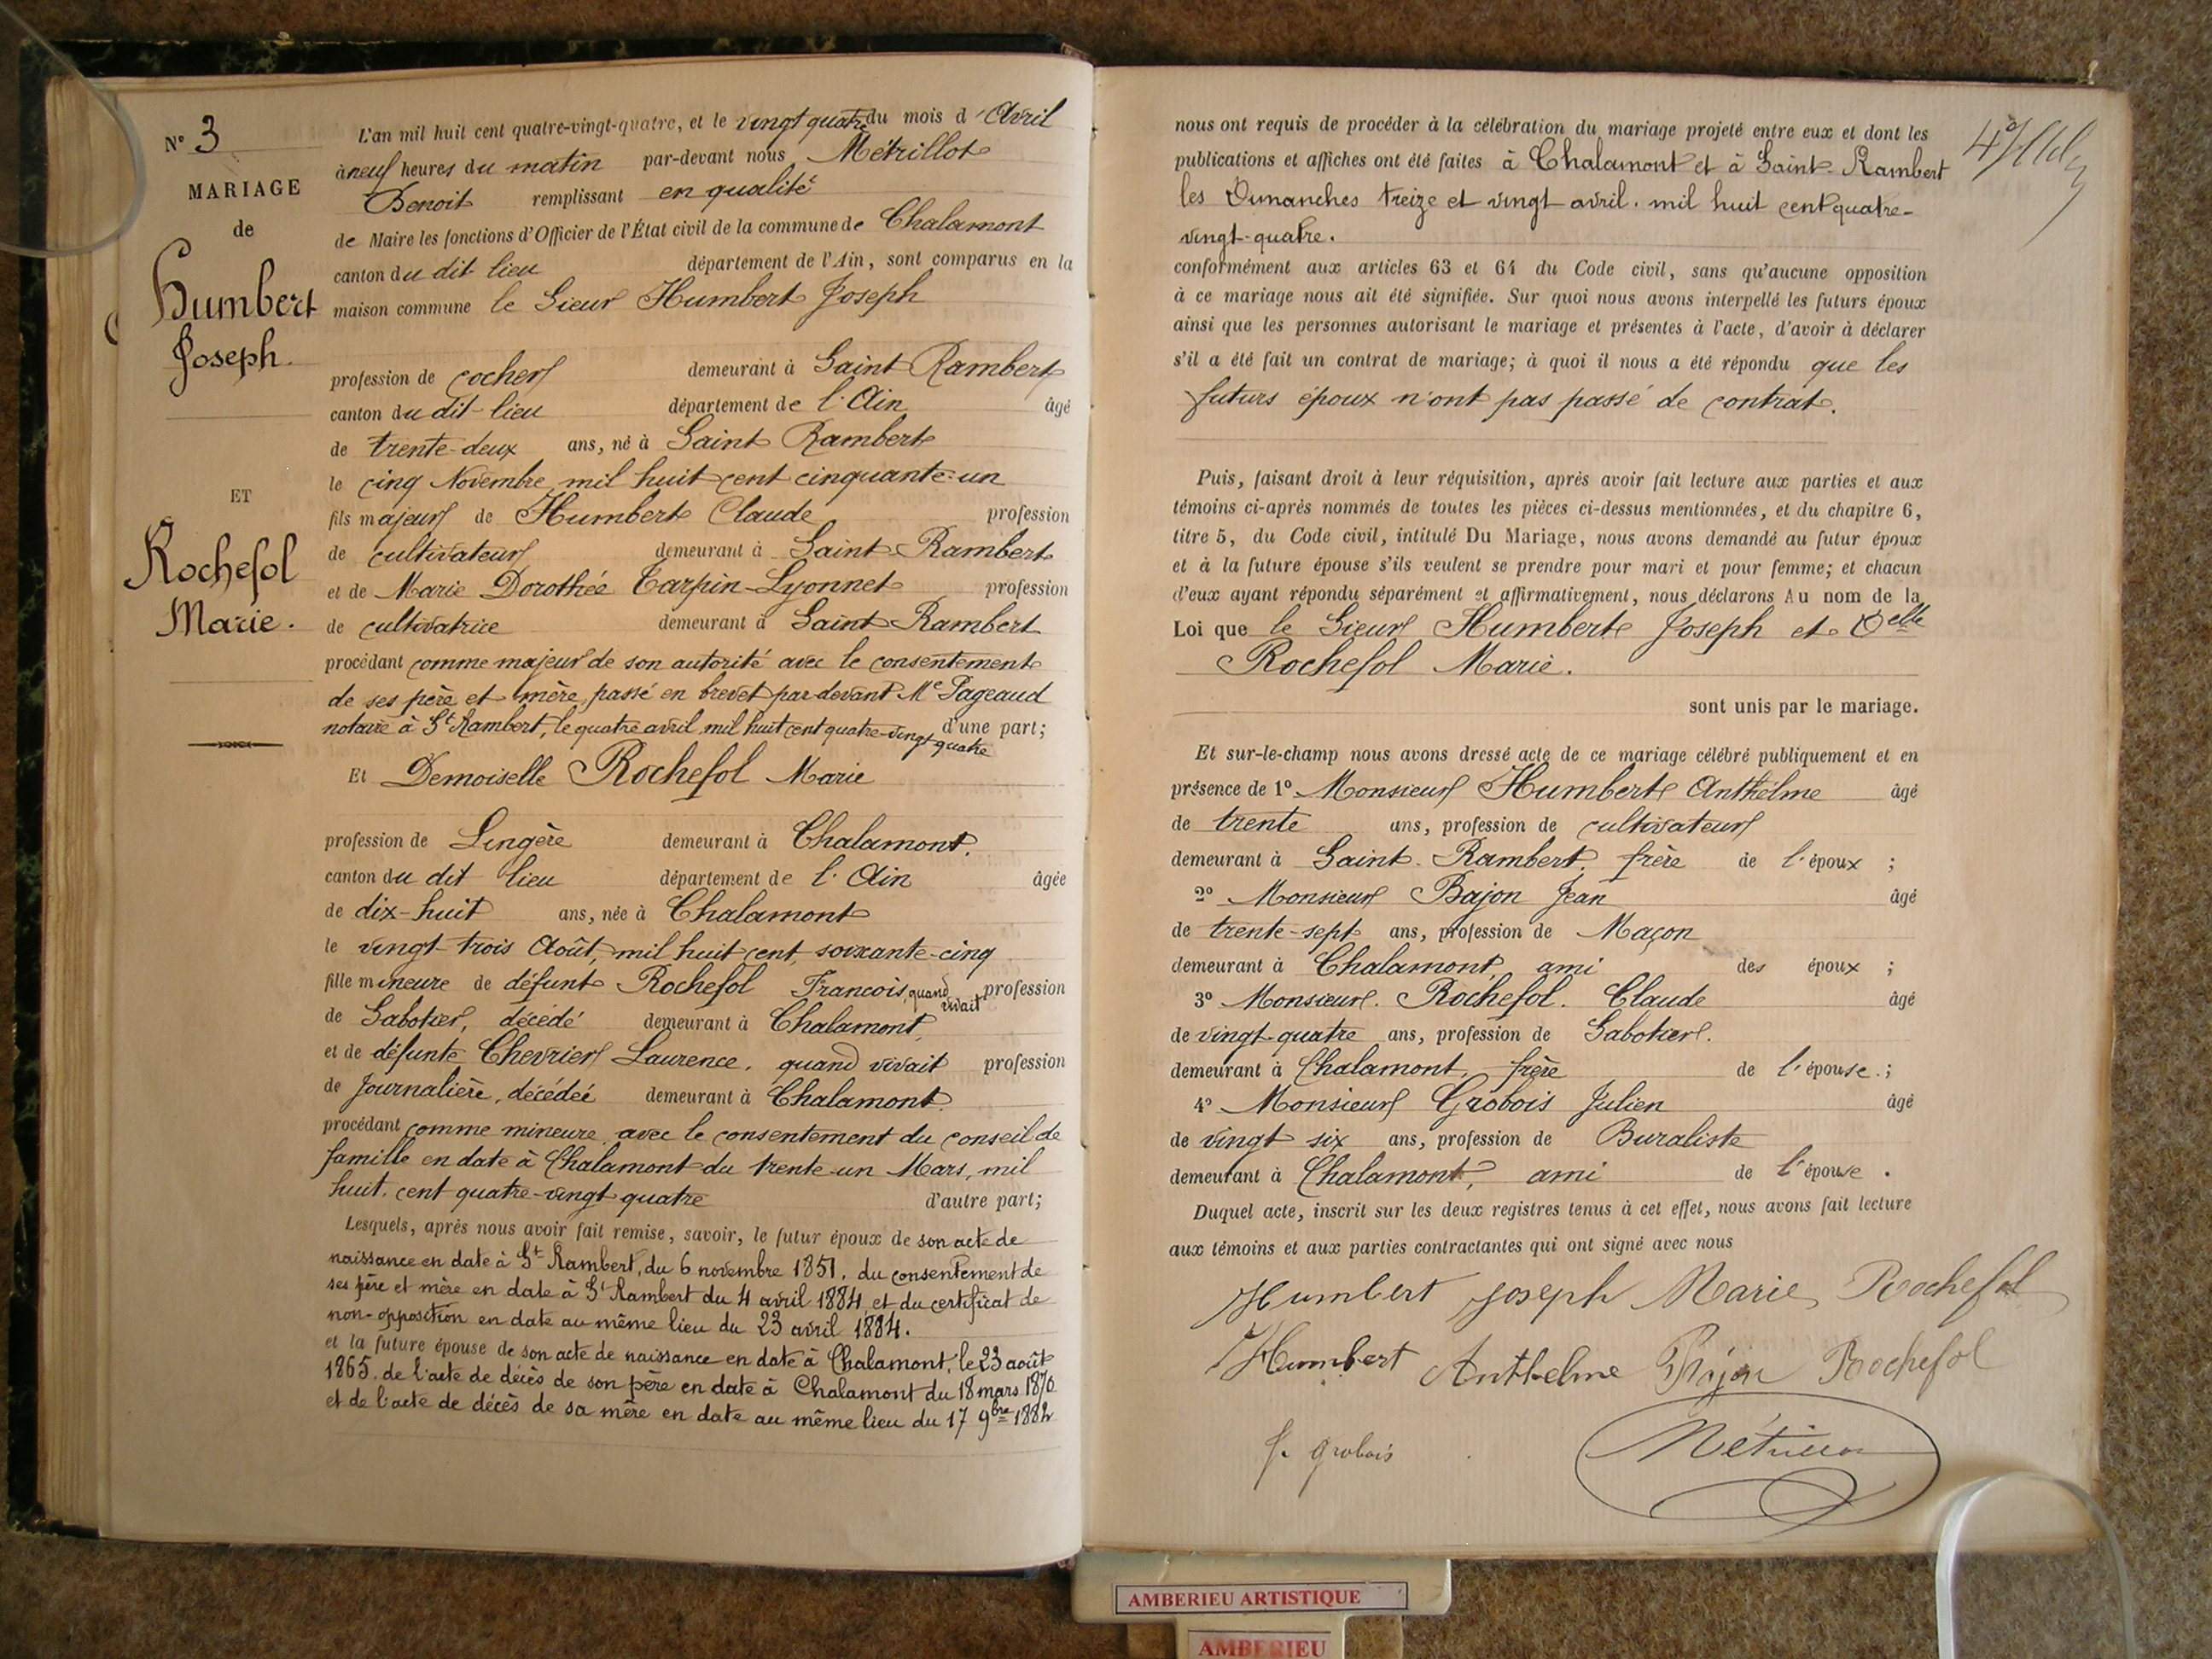 N° 3
MARIAGE
de
Humbert
Joseph.
ET
Rochefol
Marie.
L'an mil huit cent quatre-vingt-quatre, et le vingt quatre du mois d'Avril
à neuf heures du matin par-devant nous Métrillot
Benoit remplissant en qualité
de Maire les fonctions d'Officier de l'État civil de la commune de Chalamont
canton du dit lieu département de l'Ain, sont comparus en la
maison commune le Sieur Humbert Joseph
profession de cocher demeurant à Saint Rambert
canton du dit-lieu département de l'Ain âgé
de trente-deux ans, né à Saint Rambert
le cinq Novembre mil huit cent cinquante-un
fils majeur de Humbert Claude profession
de cultivateur demeurant à Saint-Rambert
et de Marie Dorothée Tarpin-Lyonnet profession
de cultivatrice demeurant à Saint-Rambert
procédant comme majeur de son autorité avec le consentement
de ses père et mère, passé en brevet par-devant Me Pageaud
notaire à St Rambert, le quatre avril mil huit cent quatre-vingt quatre d'une part;
Et Demoiselle Rochefol Marie
profession de Lingère demeurant à Chalamont.
canton du dit lieu département de l'Ain âgée
de dix-huit ans, née à Chalamont
le vingt-trois Août, mil huit cent soixante-cinq
fille mineure de défunt Rochefol Francois, quand vivait profession
de Sabotier, décédé demeurant à Chalamont,
et de défunte Chevrier Laurence. quand vivait profession
de Journalière, décédée demeurant à Chalamont.
procédant comme mineure avec le consentement du conseil de
famille en date à Chalamont du trente-un Mars, mil
huit cent quatre-vingt quatre d'autre part;
Lesquels, après nous avoir fait remise, savoir, le futur époux de son acte de
naissance en date à St Rambert, du 6 novembre 1851, du consentement de
ses père et mère en date à St Rambert du 4 avril 1884 et du certificat de
non-opposition en date au même lieu du 23 avril 1884.
et la future épouse de son acte de naissance en date à Chalamont, le 23 août
1865. de l'acte de décès de son père en date à Chalamont du 18 mars 1870
et de l'acte de décès de sa mère en date au même lieu du 17 9bre 1882
nous ont requis de procéder à la célébration du mariage projeté entre eux et dont les
publications et affiches ont été faites à Chalamont et à Saint-Rambert
les Dimanches treize et vingt avril. mil huit cent quatre-
vingt-quatre.
conformément aux articles 63 et 64 du Code civil, sans qu'aucune opposition
à ce mariage nous ait été signifiée. Sur quoi nous avons interpellé les futurs époux
ainsi que les personnes autorisant le mariage et présentes à l'acte, d'avoir à déclarer
s'il a été fait un contrat de mariage; à quoi il nous a été répondu que les
futurs époux n'ont pas passé de contrat.
Puis, faisant droit à leur réquisition, après avoir fait lecture aux parties et aux
témoins ci-après nommés de toutes les pièces ci-dessus mentionnées, et du chapitre 6,
titre 5, du Code civil, intitulé Du Mariage, nous avons demandé au futur époux
et à la future épouse s'ils veulent se prendre pour mari et pour femme; et chacun
d'eux ayant répondu séparément et affirmativement, nous déclarons Au nom de la
Loi que le Sieur Humbert Joseph et Delle
Rochefol Marie.
sont unis par le mariage.
Et sur-le-champ nous avons dressé acte de ce mariage célébré publiquement et en
présence de 1° Monsieur Humbert Anthelme âgé
de trente ans, profession de cultivateur
demeurant à Saint-Rambert, frère de l'époux ;
2° Monsieur Bajon Jean âgé
de trente-sept ans, profession de Maçon
demeurant à Chalamont, ami des époux ;
3° Monsieur. Rochefol. Claude âgé
de vingt-quatre ans, profession de Sabotier.
demeurant à Chalamont, frère de l'épouse.;
4° Monsieur Grobois Julien âgé
de vingt six ans, profession de Buraliste
demeurant à Chalamont, ami de l'épouse.
Duquel acte, inscrit sur les deux registres tenus à cet effet, nous avons fait lecture
aux témoins et aux parties contractantes qui ont signé avec nous
Humbert Joseph Marie Rochefol
Humbert Anthelme Bajon Rochefol
J. Grobois
AMBERIEU ARTISTIQUE
AMBERIEU